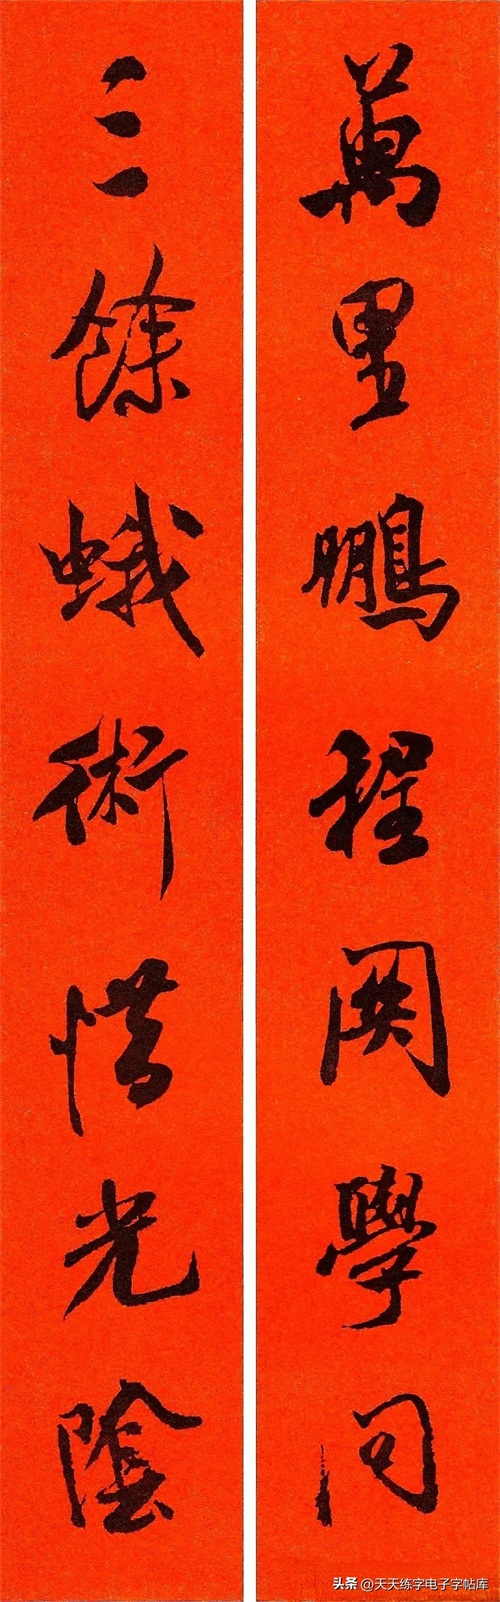 萬里鵬程關學问
三餘蛾術惜光陰
头条 @天天练字电子字帖库